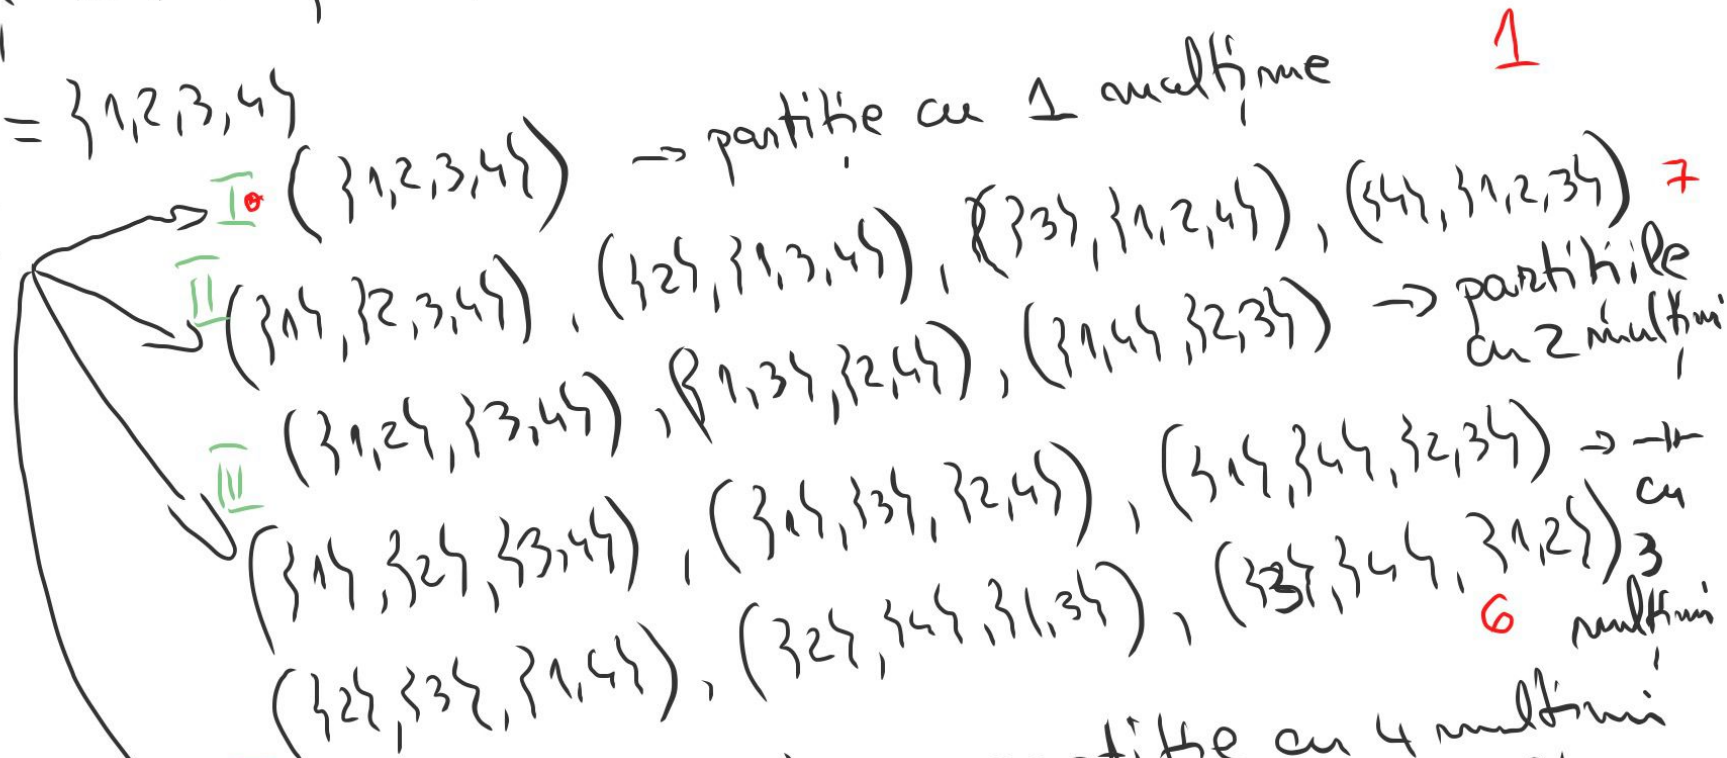 = {1,2,3,4}
1
I. ({1,2,3,4}) → partiție cu 1 mulțime
7
II ({1},{2,3,4}), ({2},{1,3,4}), ({3},{1,2,4}), ({4},{1,2,3})
({1,2},{3,4}), ({1,3},{2,4}), ({1,4},{2,3}) → partițiile
cu 2 mulțimi
III ({1},{2},{3,4}), ({1},{3},{2,4}), ({1},{4},{2,3}) → -||-
cu
({2},{3},{1,4}), ({2},{4},{1,3}), ({3},{4},{1,2}) 3
6 mulțimi
cu 4 mulțimi